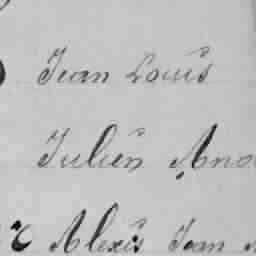 Jean Louis
Julien
Alexis Jean